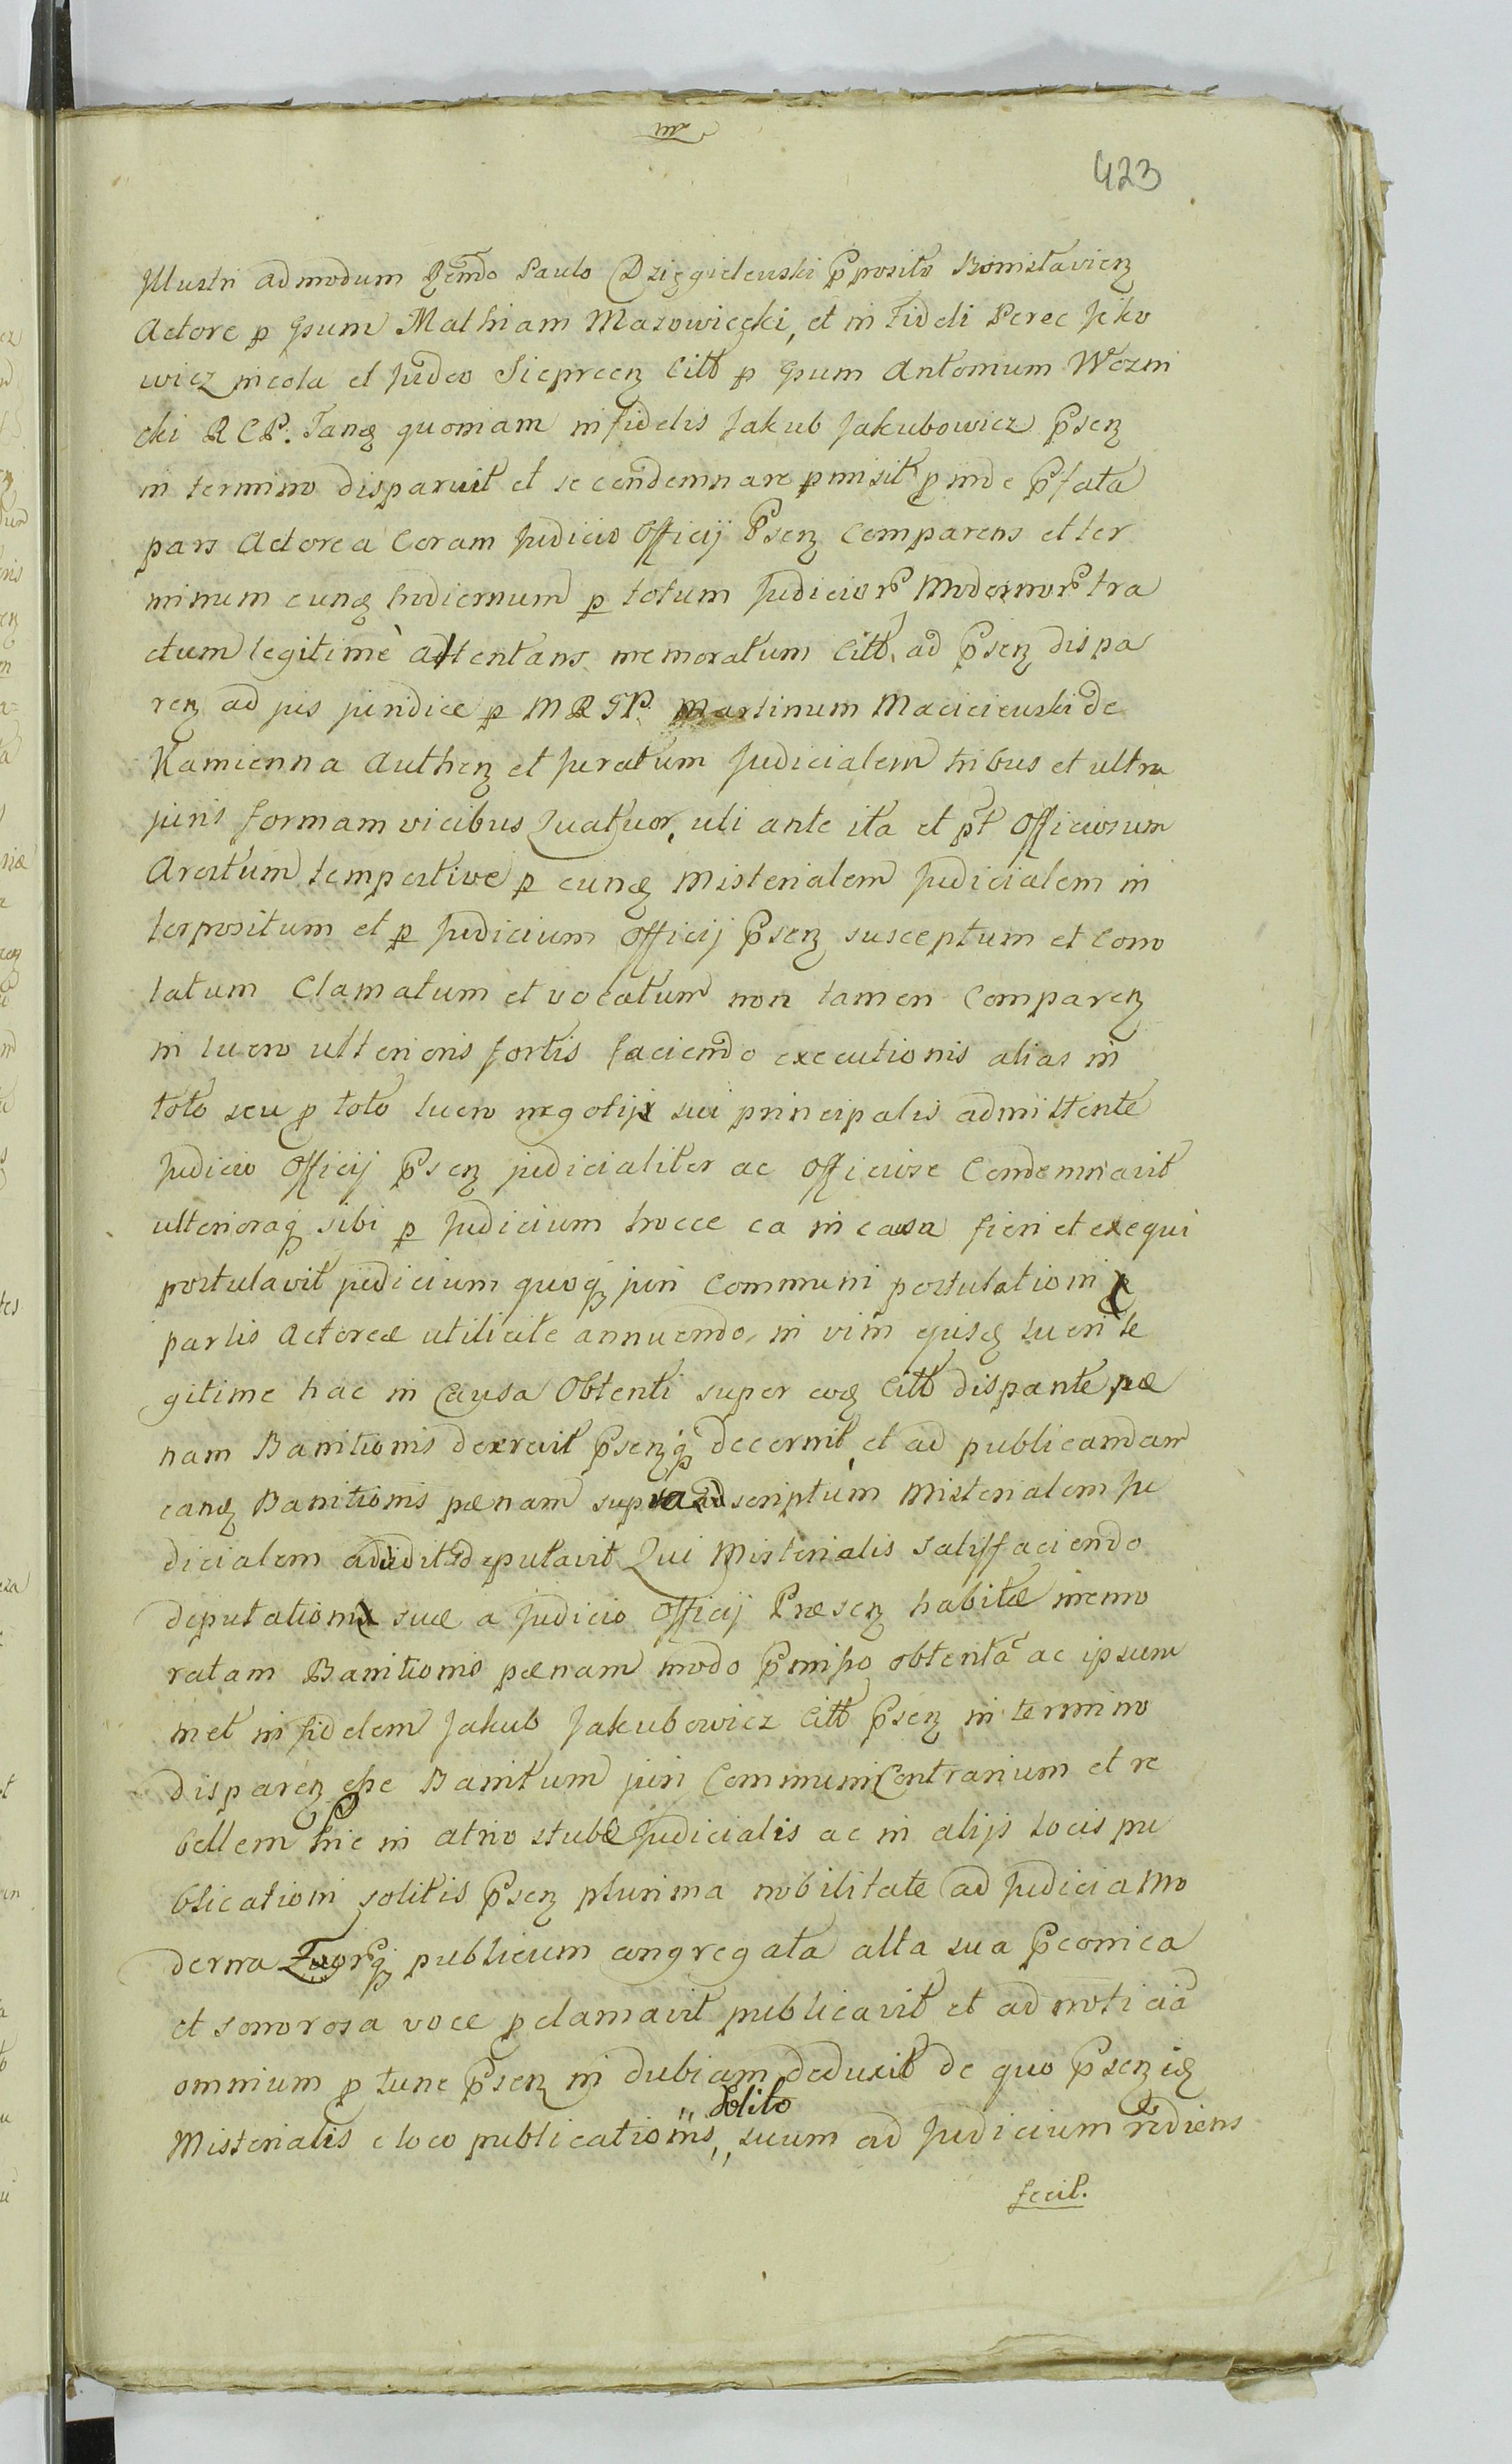 mp
423
Illustri admodum Rendo Paulo Dzięgielewski Pposito Bonislavien
Actore p Gsum Mathiam Mazowiecki, et infideli Perec Jcko
wicz incola et Judeo Sieprcen Citt p Gsum Antonium Wozni
cki R C P. Tanq quoniam infidelis Jakub Jakubowicz Psen
in termino disparuit et se condemnare pmisit pinde Pfata
pars Actorea Coram Judicio Officij Psen Comparens et ter
minum eunq hodiernum p totum Judicior Modernor tra
ctum legitimè attentans memoratum Citt. ad Psen dispa
ren ad jus juridice p M R G P. Martinum Maciejewski de
Kamienna Authen et Juratum Judicialem tribus et ultra
juris formam vicibus Quatuor, uti ante ita et pt Officiosum
Arestum tempestive p eunq Misterialem Judicialem in
terpositum et p Judicium Officij Psen susceptum et Cono
tatum Clamatum et vocatum non tamen Comparen
in lucro ulterioris fortis faciendo executionis alias in
toto seu p toto lucro negotij sui principalis admittente
Judicio Officij Psen judicialiter ac Officiose Condemnavit
ulterioraq sibi p Judicium hocce ea in casa fieri et exequi
postulavit judicium quoq juri Communi postulationi
partis Actoreæ utilicite annuendo, in vim ejusq lucri le
gitime hac in Causa Obtenti super eoq Citt dispante pæ
nam Banitionis decrevit Psenq decernit, et ad publicandam
eanq Banitionis pænam supra scriptum Misterialem Ju
dicialem addidit deputavit Qui Misterialis satisfaciendo
deputationi suæ a Judicio Officij Præsen habitæ memo
ratam Banitionis pænam modo Pmisso obtentã ac ipsum
met infidelem Jakub Jakubowicz Citt Psen in termino
disparen esse Banitum juri Communi Contrarium et re
bellem hic in atrio stubæ Judicialis ac in alijs locis pu
blicationi solitis Psen plurima nobilitate ad Judicia Mo
derna publicum congregata alta sua Pconica
et sonorosa voce pclamavit publicavit et ad noticiã
omnium p tunc Psen in dubiam deduxit de quo Psen iq
Misterialis e loco publicationis „ solito „ suum ad Judicium rediens
fecit.